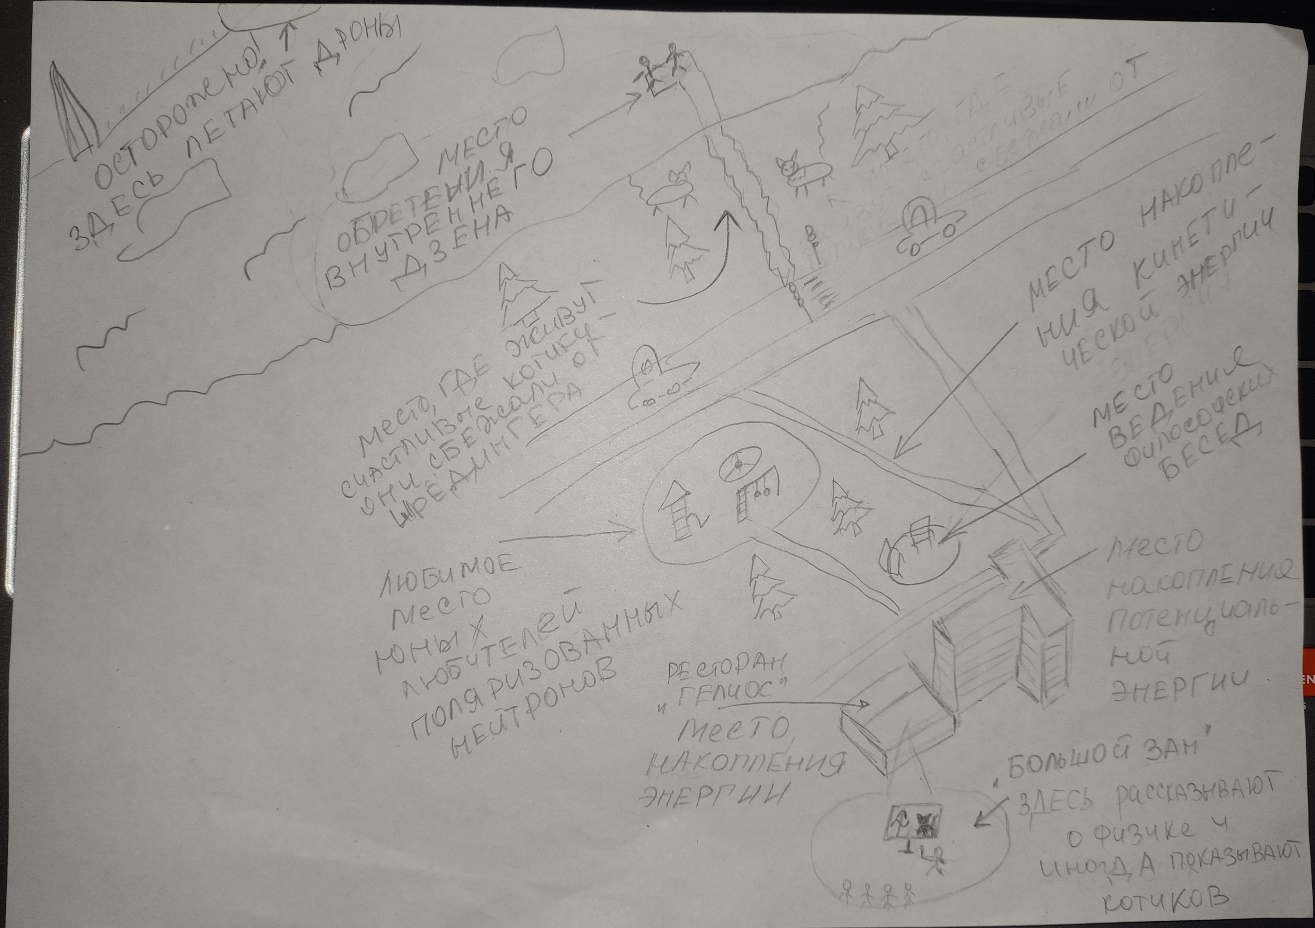 ОСТОРОЖНО!
ЗДЕСЬ ЛЕТАЮТ ДРОНЫ
МЕСТО
ОБРЕТЕНИЯ
ВНУТРЕННЕГО
ДЗЕНА
МЕСТО, ГДЕ ЖИВУТ
СЧАСТЛИВЫЕ КОТИКИ –
ОНИ СБЕЖАЛИ ОТ
ШРЁДИНГЕРА
МЕСТО НАКОПЛЕ-
НИЯ КИНЕТИ-
ЧЕСКОЙ ЭНЕРГИИ
МЕСТО
ВЕДЕНИЯ
ФИЛОСОФСКИХ
БЕСЕД
ЛЮБИМОЕ
МЕСТО
ЮНЫХ
ЛЮБИТЕЛЕЙ
ПОЛЯРИЗОВАННЫХ
НЕЙТРОНОВ
МЕСТО
НАКОПЛЕНИЯ
ПОТЕНЦИАЛЬ-
НОЙ
ЭНЕРГИИ
РЕСТОРАН
„ГЕЛИОС"
МЕСТО
НАКОПЛЕНИЯ
ЭНЕРГИИ
„БОЛЬШОЙ ЗАЛ"
ЗДЕСЬ РАССКАЗЫВАЮТ
О ФИЗИКЕ И
ИНОГДА ПОКАЗЫВАЮТ
КОТИКОВ